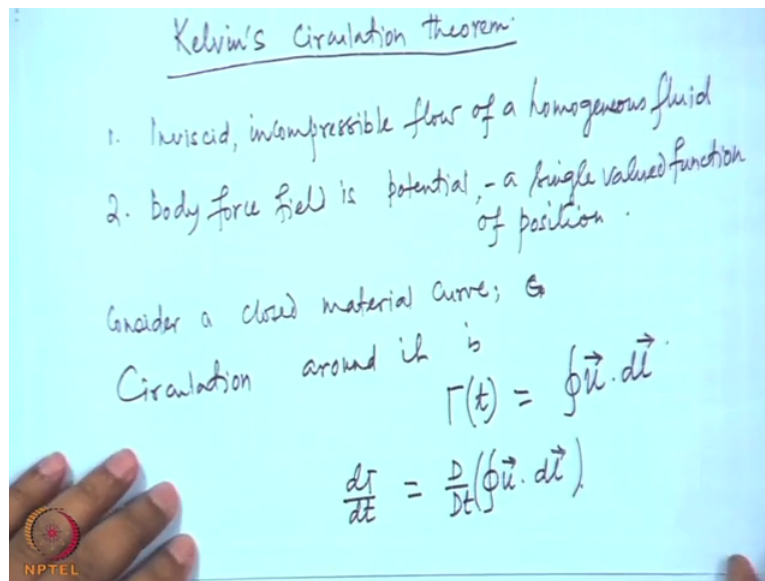 Kelvin's Circulation theorem.
1. Inviscid, incompressible flow of a homogeneous fluid
2. Body force field is potential, - a single valued function
of position.
Consider a closed material curve;
Circulation around it is
Γ(t) = ∮u⃗.dl⃗.
dΓ/dt = D/Dt(∮u⃗.dl⃗).
NPTEL